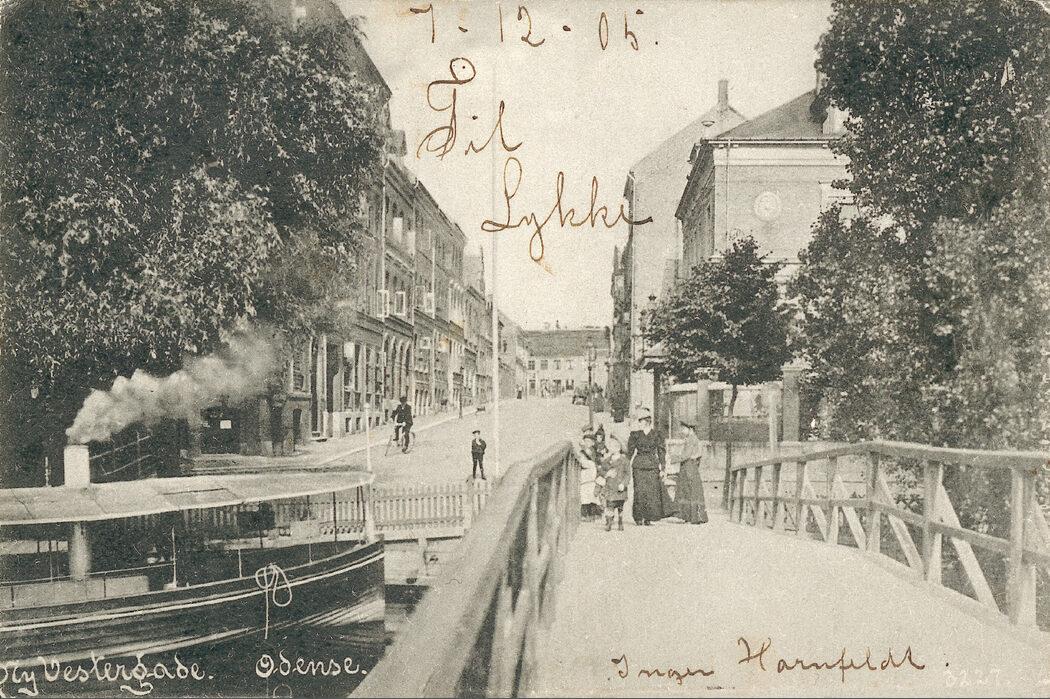 7-12-05.
Til
Lykke
Ny Vestergade. Odense.
Inger Harnfeldt.
3227.